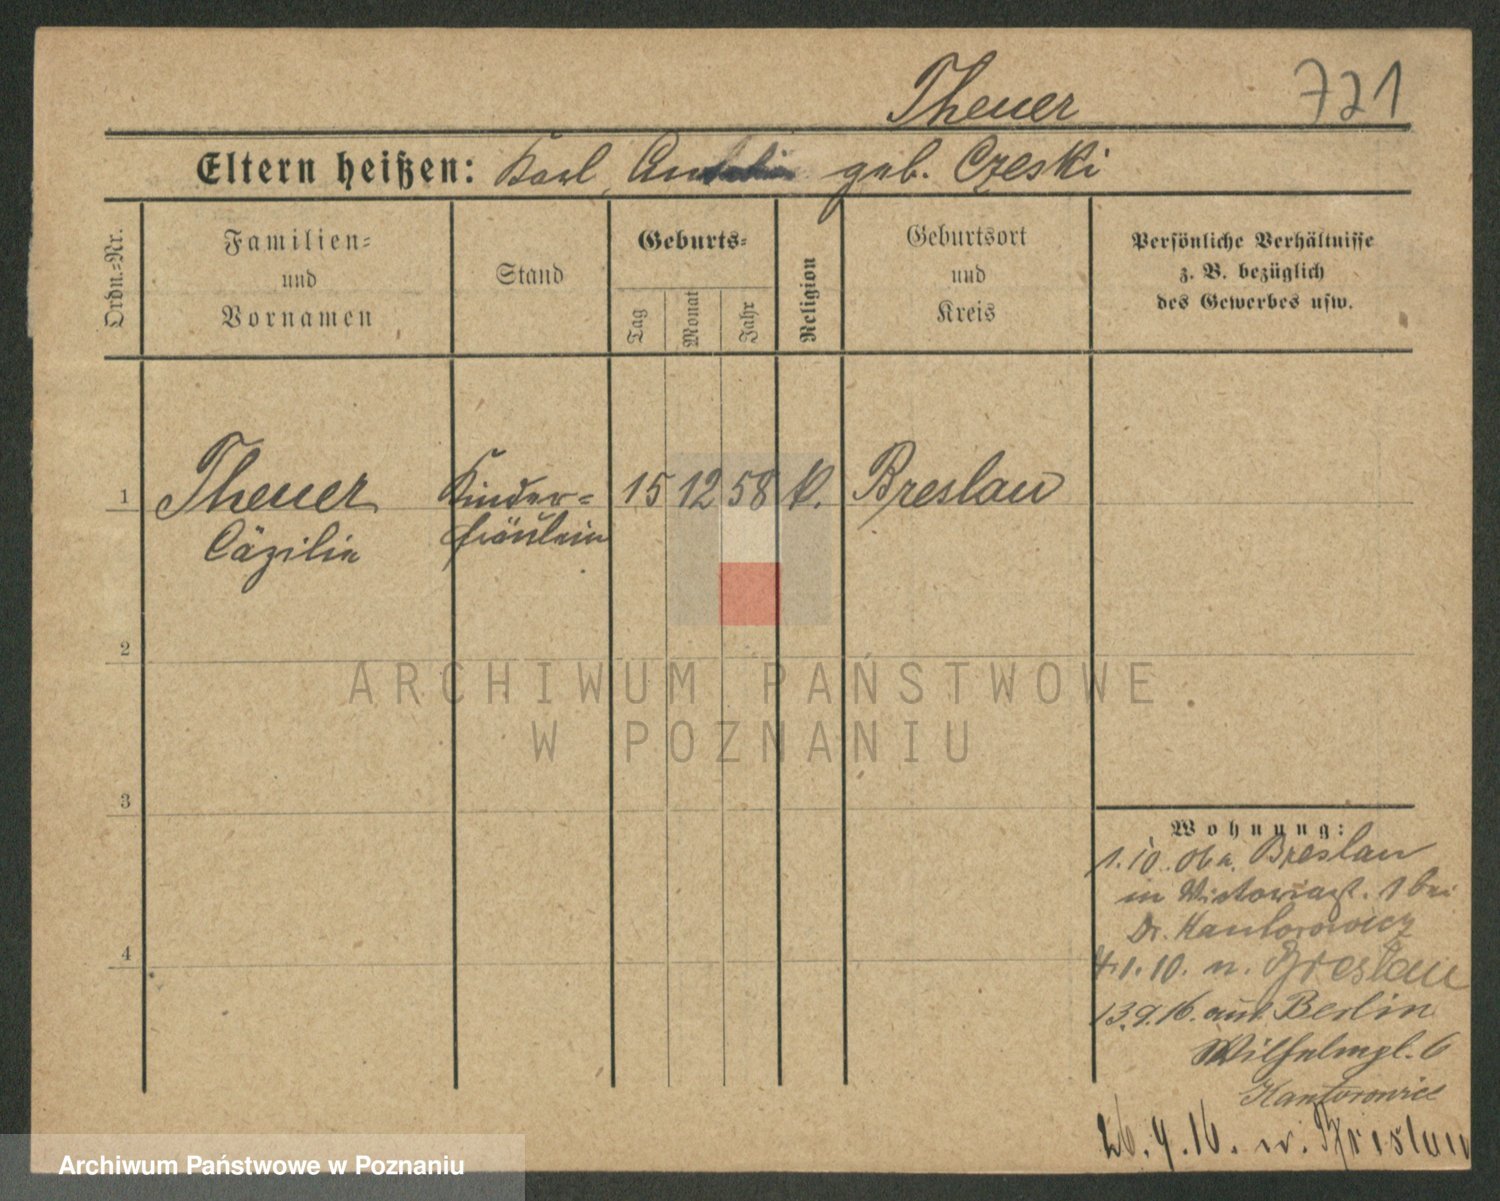 Theuer 721
Eltern heißen: Karl, geb. Czeski
Ordn.-Nr.
Familien-
und
Vornamen
Stand
Geburts-
Tag
Monat
Jahr
Religion
Geburtsort
und
Kreis
Persönliche Verhältnisse
z. B. bezüglich
des Gewerbes usw.
1 Theuer Kinder= 15 12 58 k. Breslau
Cäzilie fräulein
2
3
4
Wohnung:
1.10.06 a. Breslau
in Victoriast. 1 bei
Dr. Kantorowicz
1.10. n. Breslau
13.9.16. aus Berlin
Wilhelmpl. 6
Kantorowicz
26.9.16. n. Breslau
ARCHIWUM PAŃSTWOWE
W POZNANIU
Archiwum Państwowe w Poznaniu